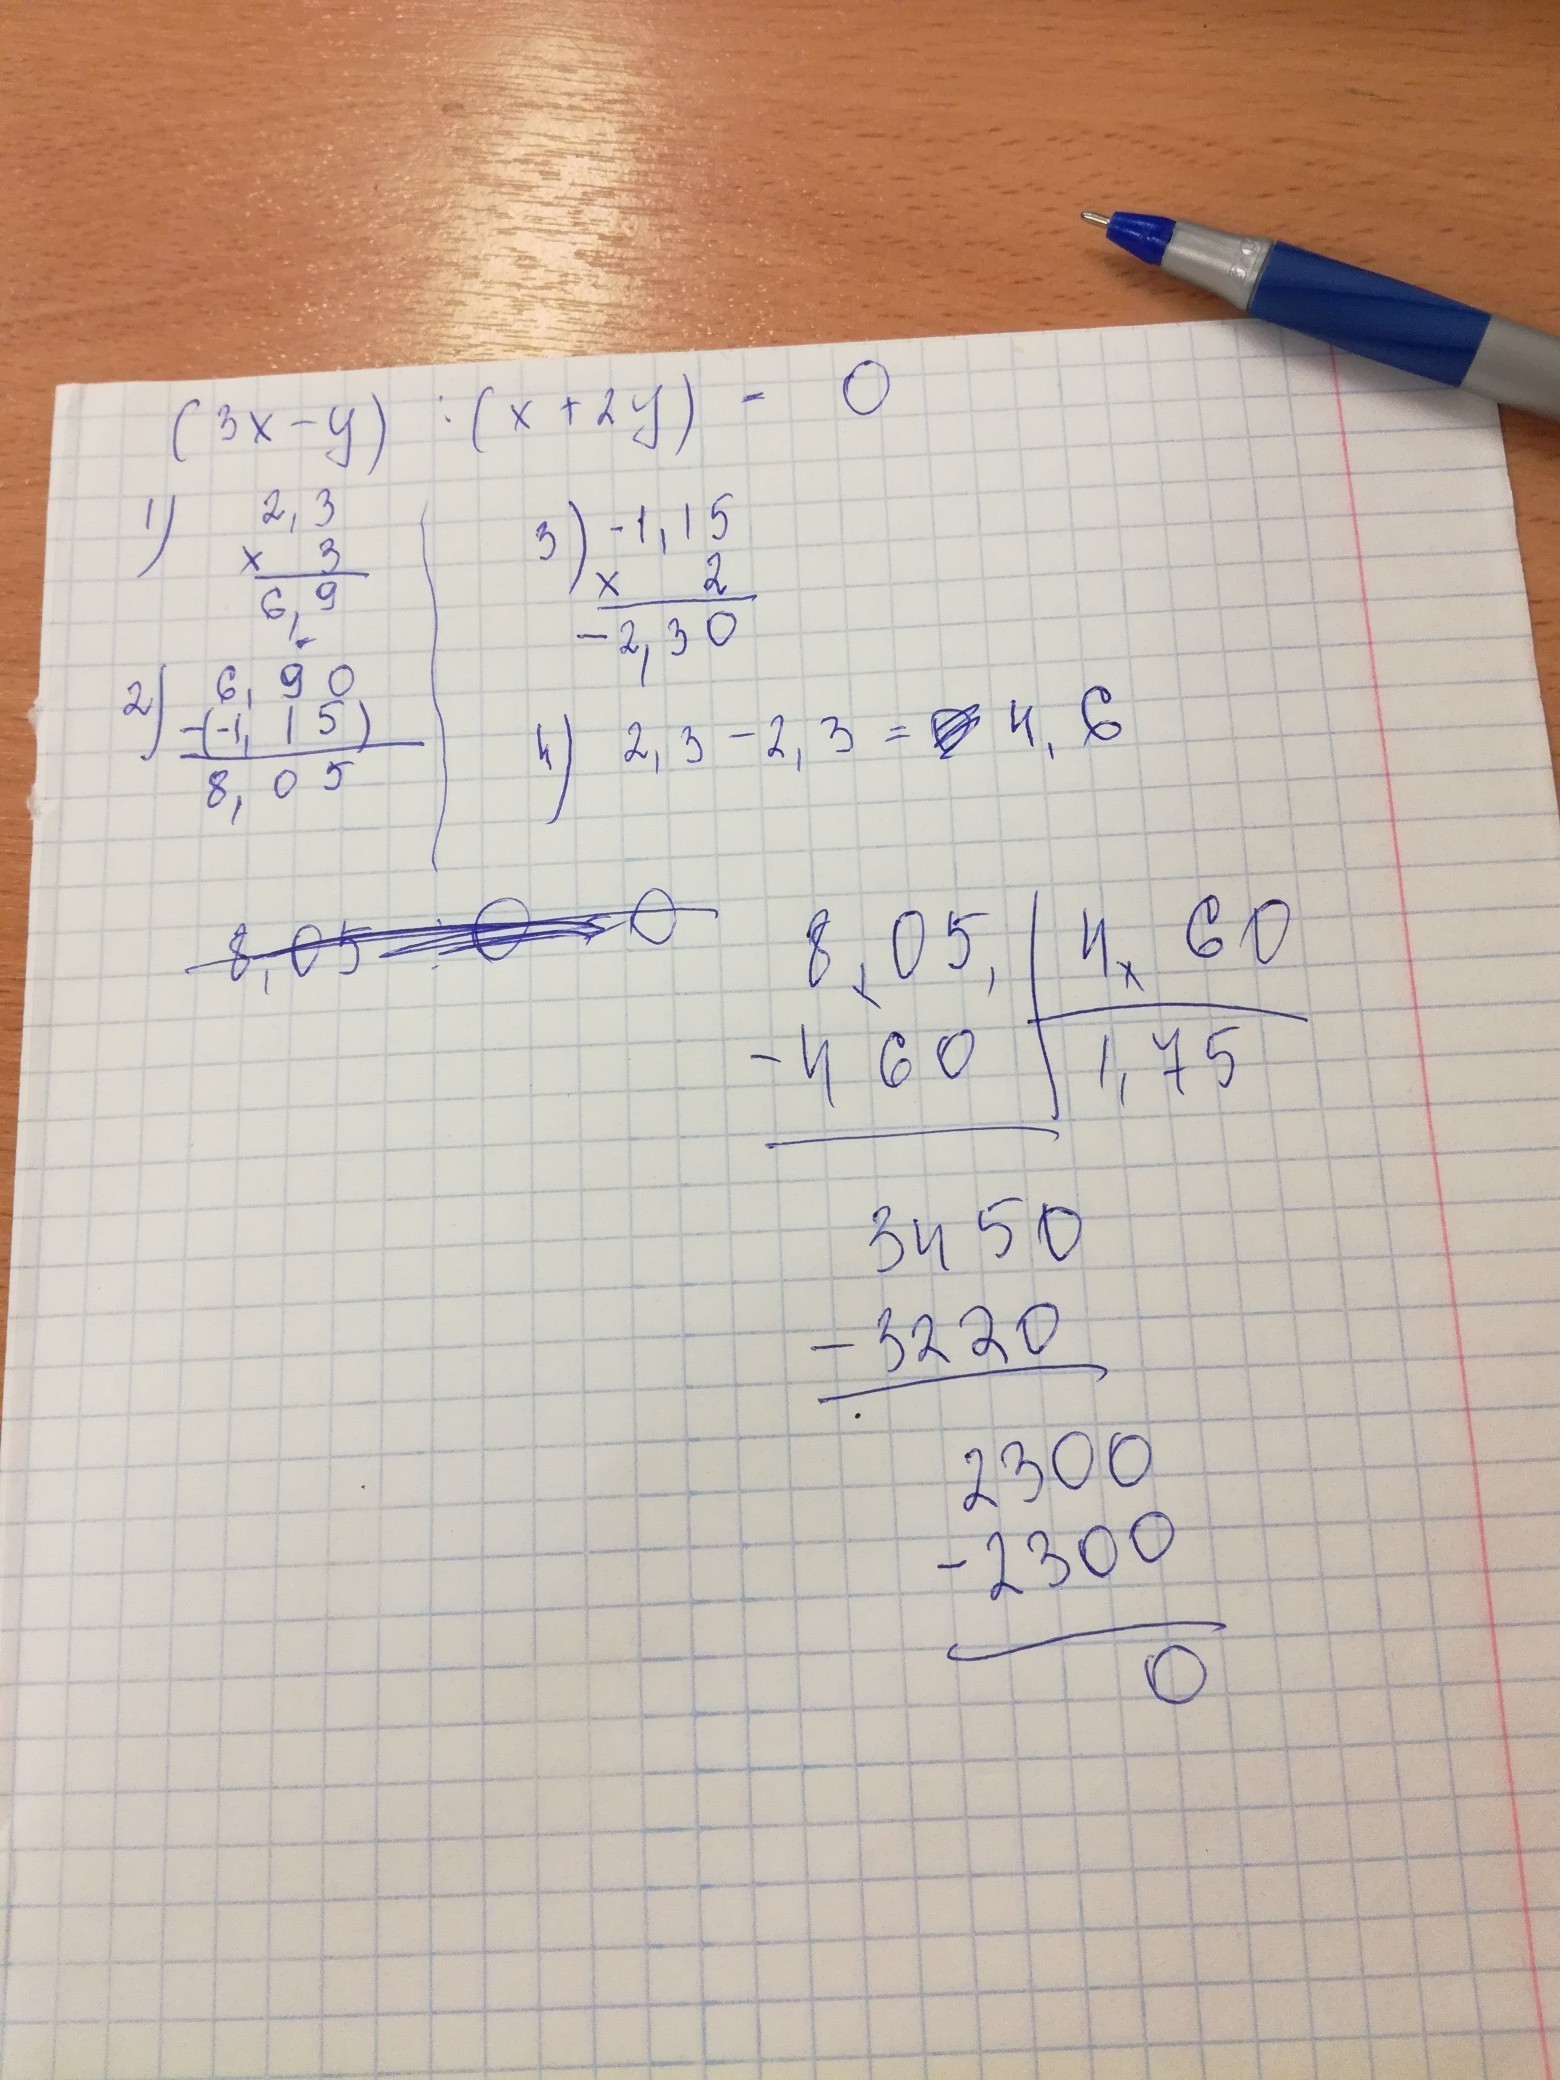 (3x-y) : (x+2y) - 0
1) 2,3
x 3
6,9
2) 6,90
-(-1,15)
8,05
3) -1,15
x 2
-2,30
4) 2,3-2,3= 4,6
8,05 : 0 0
8,05, 4,60
-460 1,75
3450
-3220
2300
-2300
0